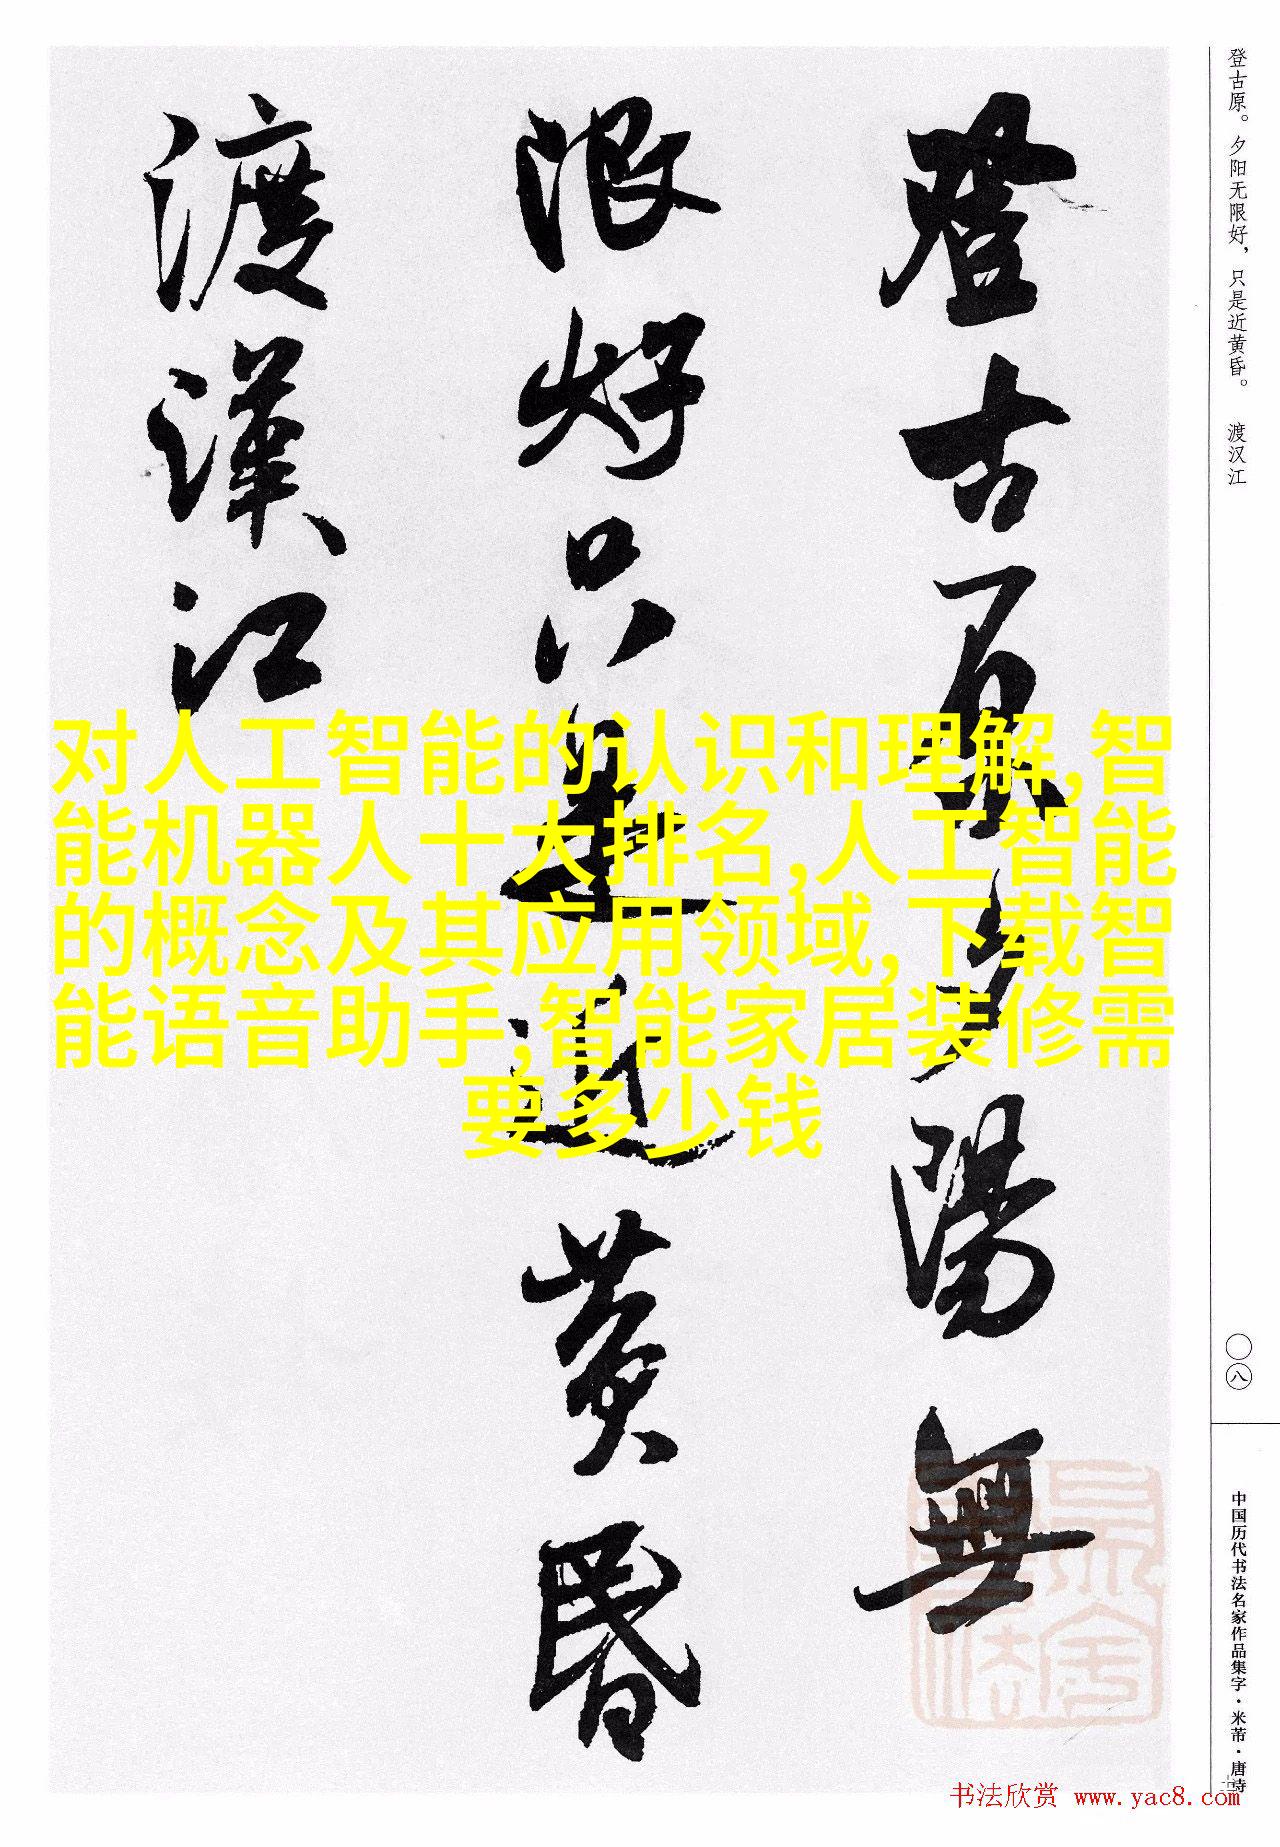 登古原。夕阳无限好,只是近黄昏。 渡汉江
登古原夕陽無
限好只是近黄昏
渡漢江
对人工智能的认识和理解,智
能机器人十大排名,人工智能
的概念及其应用领域,下载智
能语音助手,智能家居装修需
要多少钱
〇八
中国历代书法名家作品集字·米芾·唐诗
书法欣赏 www.yac8.com